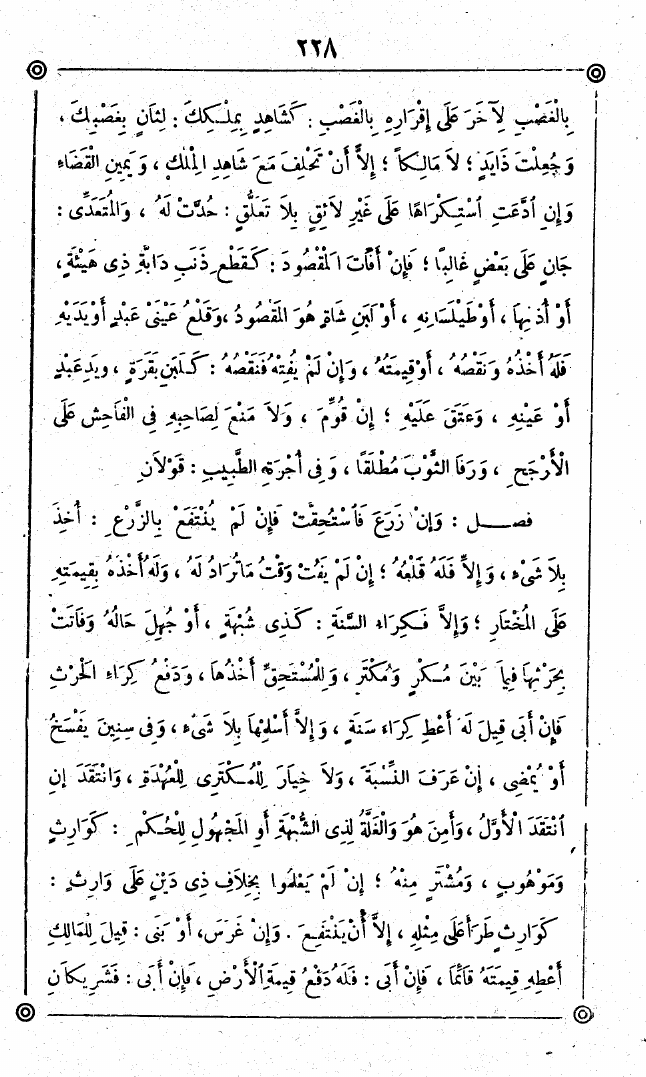 ٢٢٨
بِالْغَصْبِ لِآخَرَ عَلَى إِقْرَارِهِ بِالْغَصْبِ : كَشَاهِدٍ بِمِلْكِكَ : لِثَانٍ بِغَصْبِكَ ،
وَجُعِلْتَ ذَايَدٍ ؛ لاَ مَالِكاً ؛ إِلاَّ أَنْ تَحْلِفَ مَعَ شَاهِدِ الْمِلْكِ ، وَيَمِينِ الْقَضَاءِ
وَإِنِ ادَّعَتِ اسْتِكْرَاهاً عَلَى غَيْرِ لاَئِقٍ بِلاَ تَعَلُّقٍ : حُدَّتْ لَهُ ، وَالْمُتَعَدِّى :
جَانٍ عَلَى بَعْضٍ غَالِبًا ؛ فَإِنْ أَفَاتَ الْمَقْصُودَ : كَقَطْعِ ذَنَبِ دَابَّةِ ذِى هَيْئَةٍ ،
أَوْ أُذنِهاَ ، أَوْطَيْلَسَانِهِ ، أَوْ لَبَنِ شَاةٍ هُوَ المَقْصُودُ ،وَقَلْعُ عَيْنَىْ عَبْدٍ أَوْيَدَيْهِ
فَلَهُ أَخْذُهُ وَنَقْصُهُ ، أَوْقِيمَتُهُ ، وَإِنْ لَمْ يُفِتْهُ فَنَقْصُهُ : كَلَبَنِ بَقَرَةٍ ، ويَدِ عَبْدٍ
أَوْ عَيْنِهِ ، وَعَتَقَ عَلَيْهِ ؛ إِنْ قُوِّمَ ، وَلاَ مَنْعَ لِصَاحِبِهِ فِى الْفاَحِشِ عَلَى
الْأَرْجَحِ ، وَرَفَا الثَّوْبَ مُطْلَقًا ، وَفِى أُجْرَةِ الطَّبِيبِ : قَوْلاَنِ
فصـــل : وَإِنْ زَرَعَ فَاسْتُحِقَّتْ فَإِنْ لَمْ يُنْتَفَعْ بِالزَّرْعِ : أُخِذَ
بِلاَ شَىْءٍ ، وَإِلاَّ فَلَهُ قَلْعُهُ ؛ إِنْ لَمْ يَفُتْ وَقْتُ مَاتُرَادُ لَهُ ، وَلَهُ أَخْذُهُ بِقِيمَتِهِ
عَلَى الْمُخْتَارِ ؛ وَإِلاَّ فَكِرَاءُ السَّنَةِ : كَذِى شُبْهَةٍ ، أَوْ جُهِلَ حَالُهُ وَفَاتَتْ
بِحَرْثِهاَ فِيماَ بَيْنَ مُكْرٍ وَمُكْتَرٍ ، وَلِلْمُسْتَحِقِّ أَخْذُهَا ، وَدَفْعُ كِرَاءِ الْحَرْثِ
فَإِنْ أَبَى قِيلَ لَهُ أَعْطِ كِرَاءَ سَنَةٍ ، وَإِلاَّ أَسْلِمْهاَ بِلاَ شَىْءٍ ، وَفِى سِنِينَ يَفْسَخُ
أَوْ يُمْضِى ، إِنْ عَرَفَ النِّسْبَةَ ، وَلاَ خِيَارَ لِلْمُكْتَرِى لِلْعُهْدَةِ ، وَانْتَقَدَ إِنِ
انْتَقَدَ الْأَوَّلُ ، وَأَمِنَ هُوَ وَالْغَلَّةُ لِذِى الشُّبْهَةِ أَوِ الْمَجْهُولِ لِلْحُكْمِ : كَوَارِثٍ
وَمَوْهُوبٍ ، وَمُشْتَرٍ مِنْهُ ؛ إِنْ لَمْ يَعْلَمُوا بِخِلاَفِ ذِى دَيْنٍ عَلَى وَارِثٍ :
كَوَارِثٍ طَرَأَ عَلَى مِثْلِهِ ، إِلاَّ أَنْ يَنْتَفِعَ . وَإِنْ غَرَسَ، أَوْ بَنَى : قِيلَ لِلْمَالِكِ
أَعْطِهِ قِيمَتَهُ قَائِمًا ، فَإِنْ أَبَى : فَلَهُ دَفْعُ قِيمَةِ الْأَرْضِ ، فَإِنْ أَبَى : فَشَرِيكاَنِ